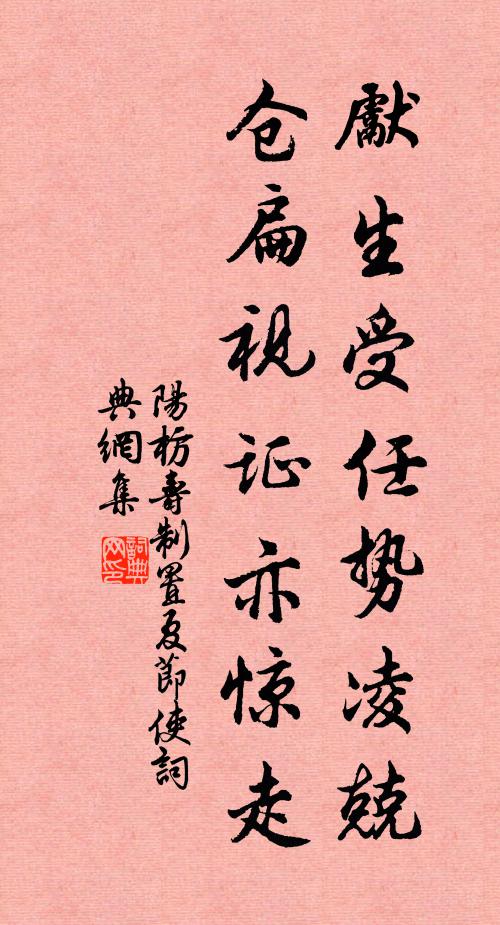 獻生受任势凌兢
仓扁視证亦惊走
陽枋壽制置夏節使詞
典網集
詞典
网印